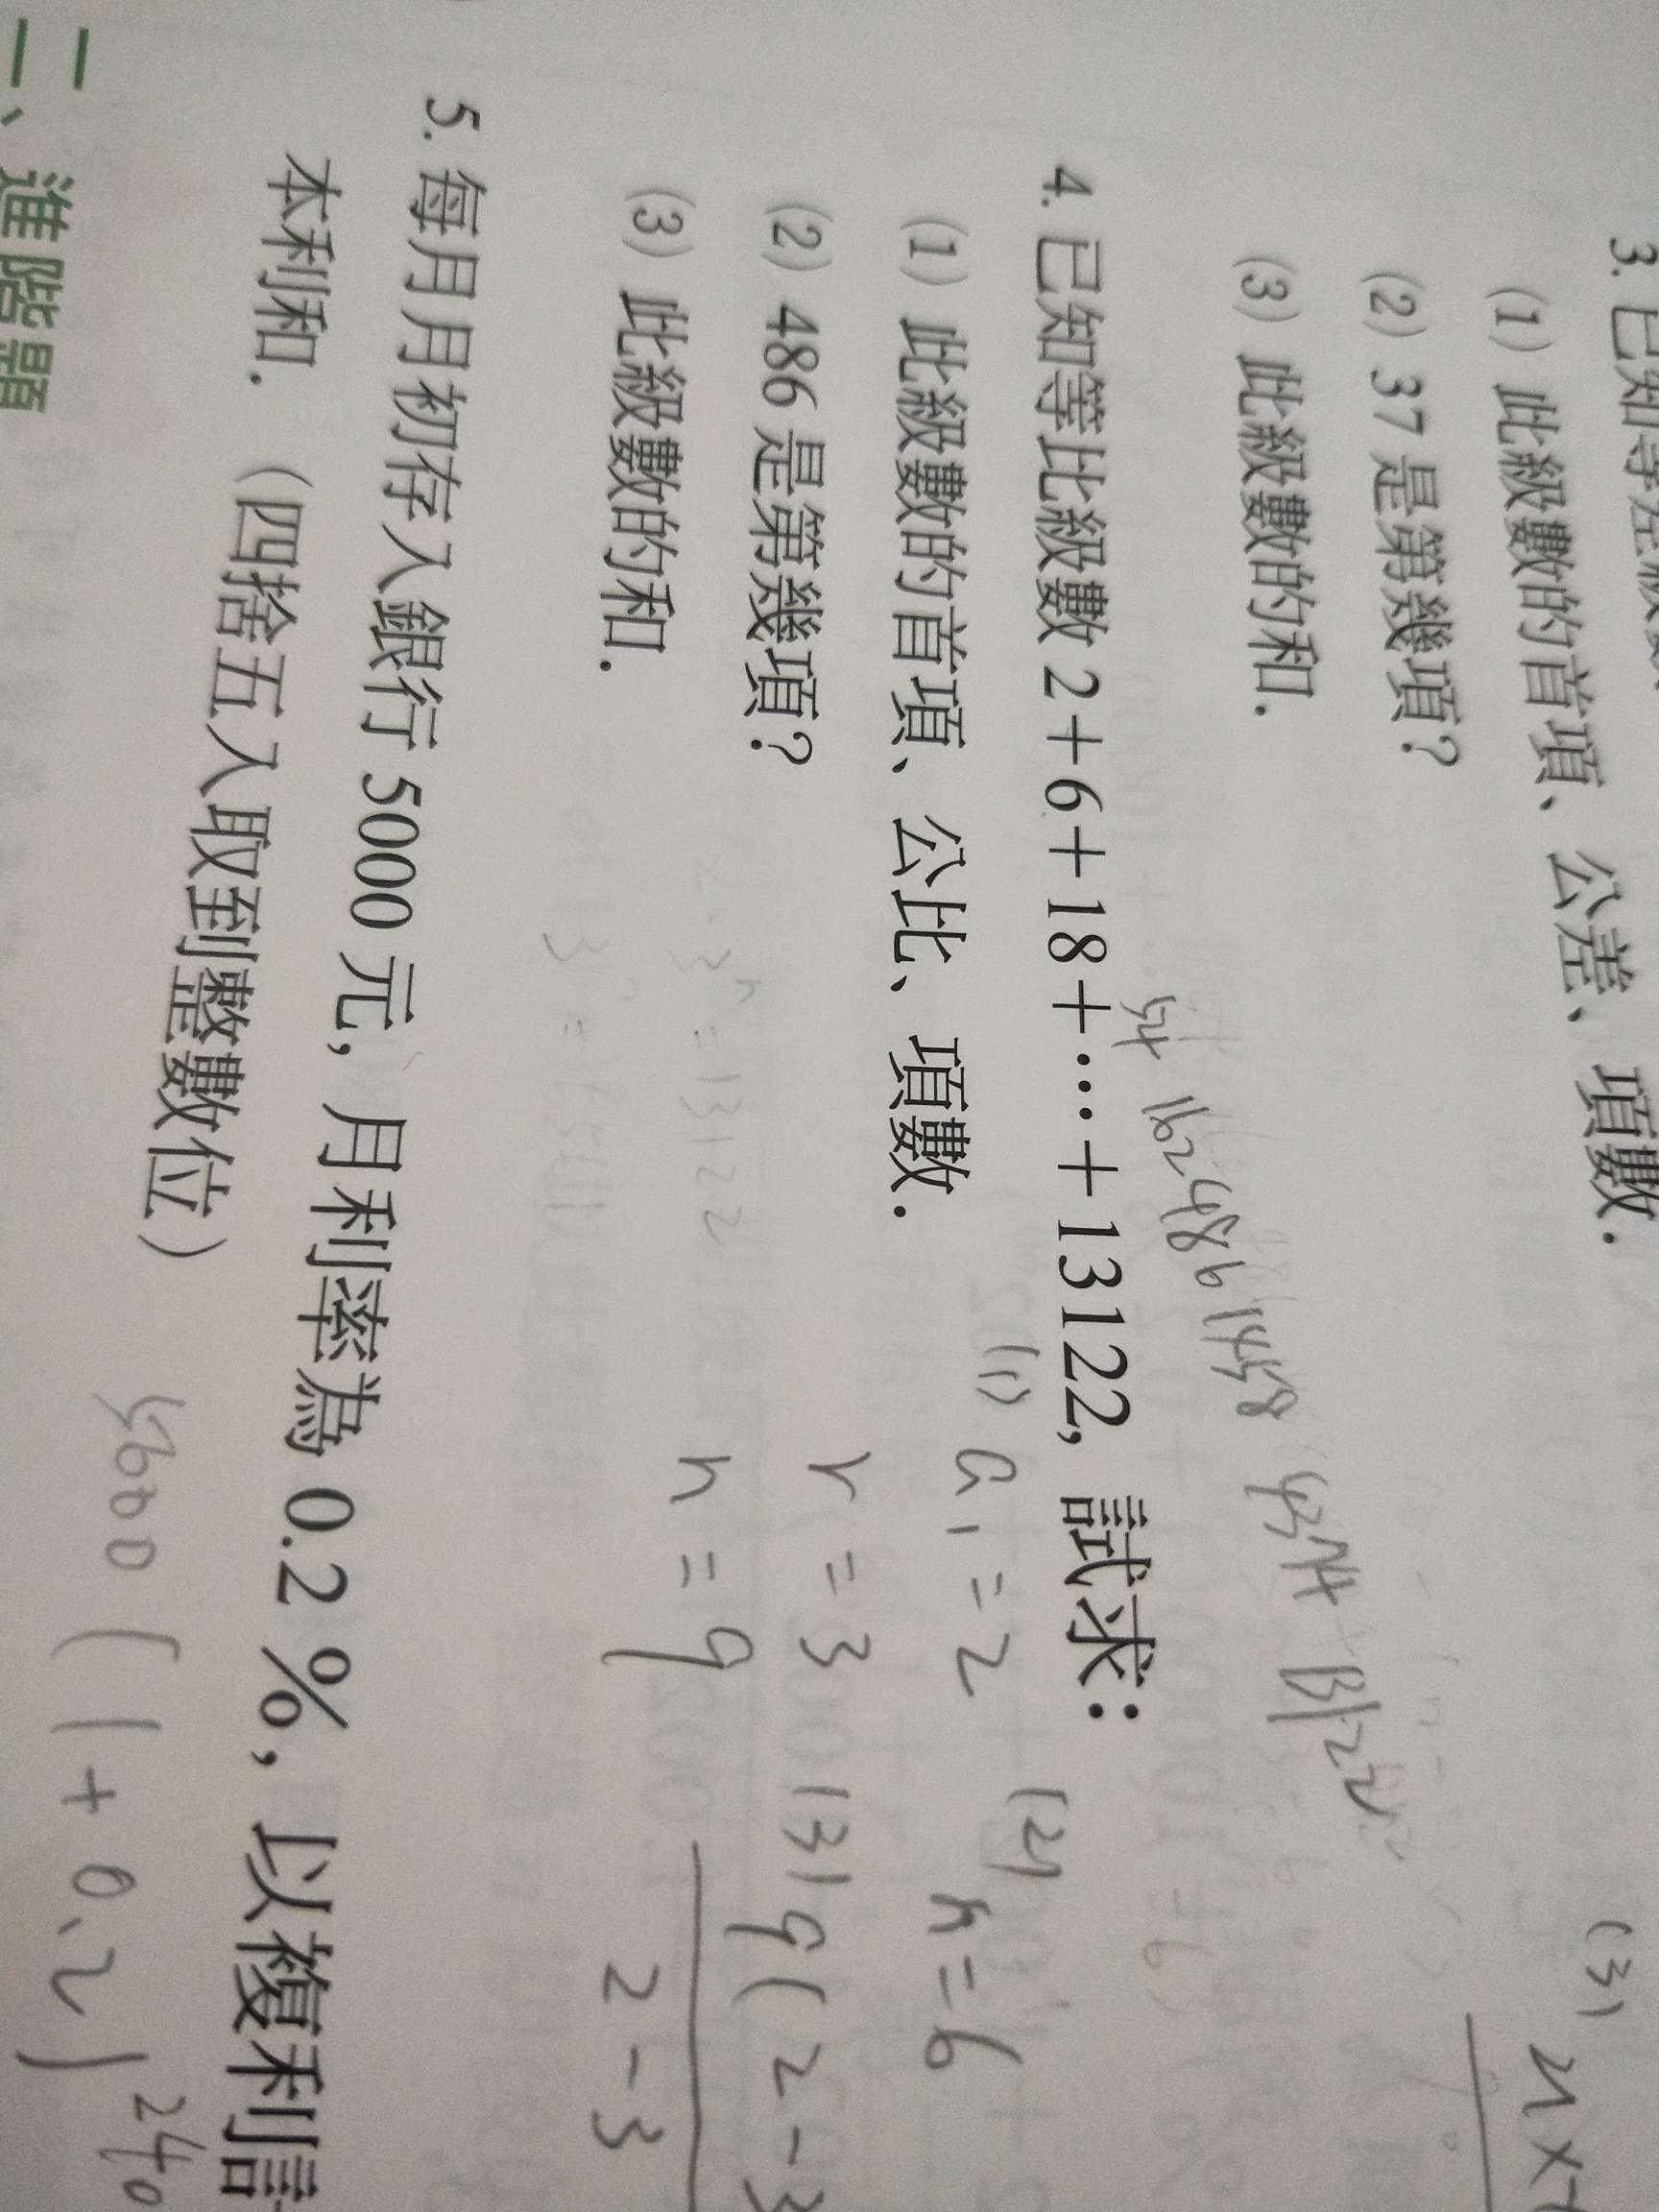 3. 已知等差級數
(1) 此級數的首項、公差、項數.
(2) 37 是第幾項?
(3) 此級數的和.
(3)
4. 已知等比級數 2+6+18+⋯+13122, 試求:
54 162 486 1458 4374 13122
(1) 此級數的首項、公比、項數.
(2) 486 是第幾項?
(3) 此級數的和.
(1) a₁=2
r=3
n=9
(2)
n=6
2-3
5. 每月月初存入銀行 5000 元, 月利率為 0.2 %, 以複利計
本利和. (四捨五入取到整數位)
5000 (1+0.2)²⁴⁰
二、進階題